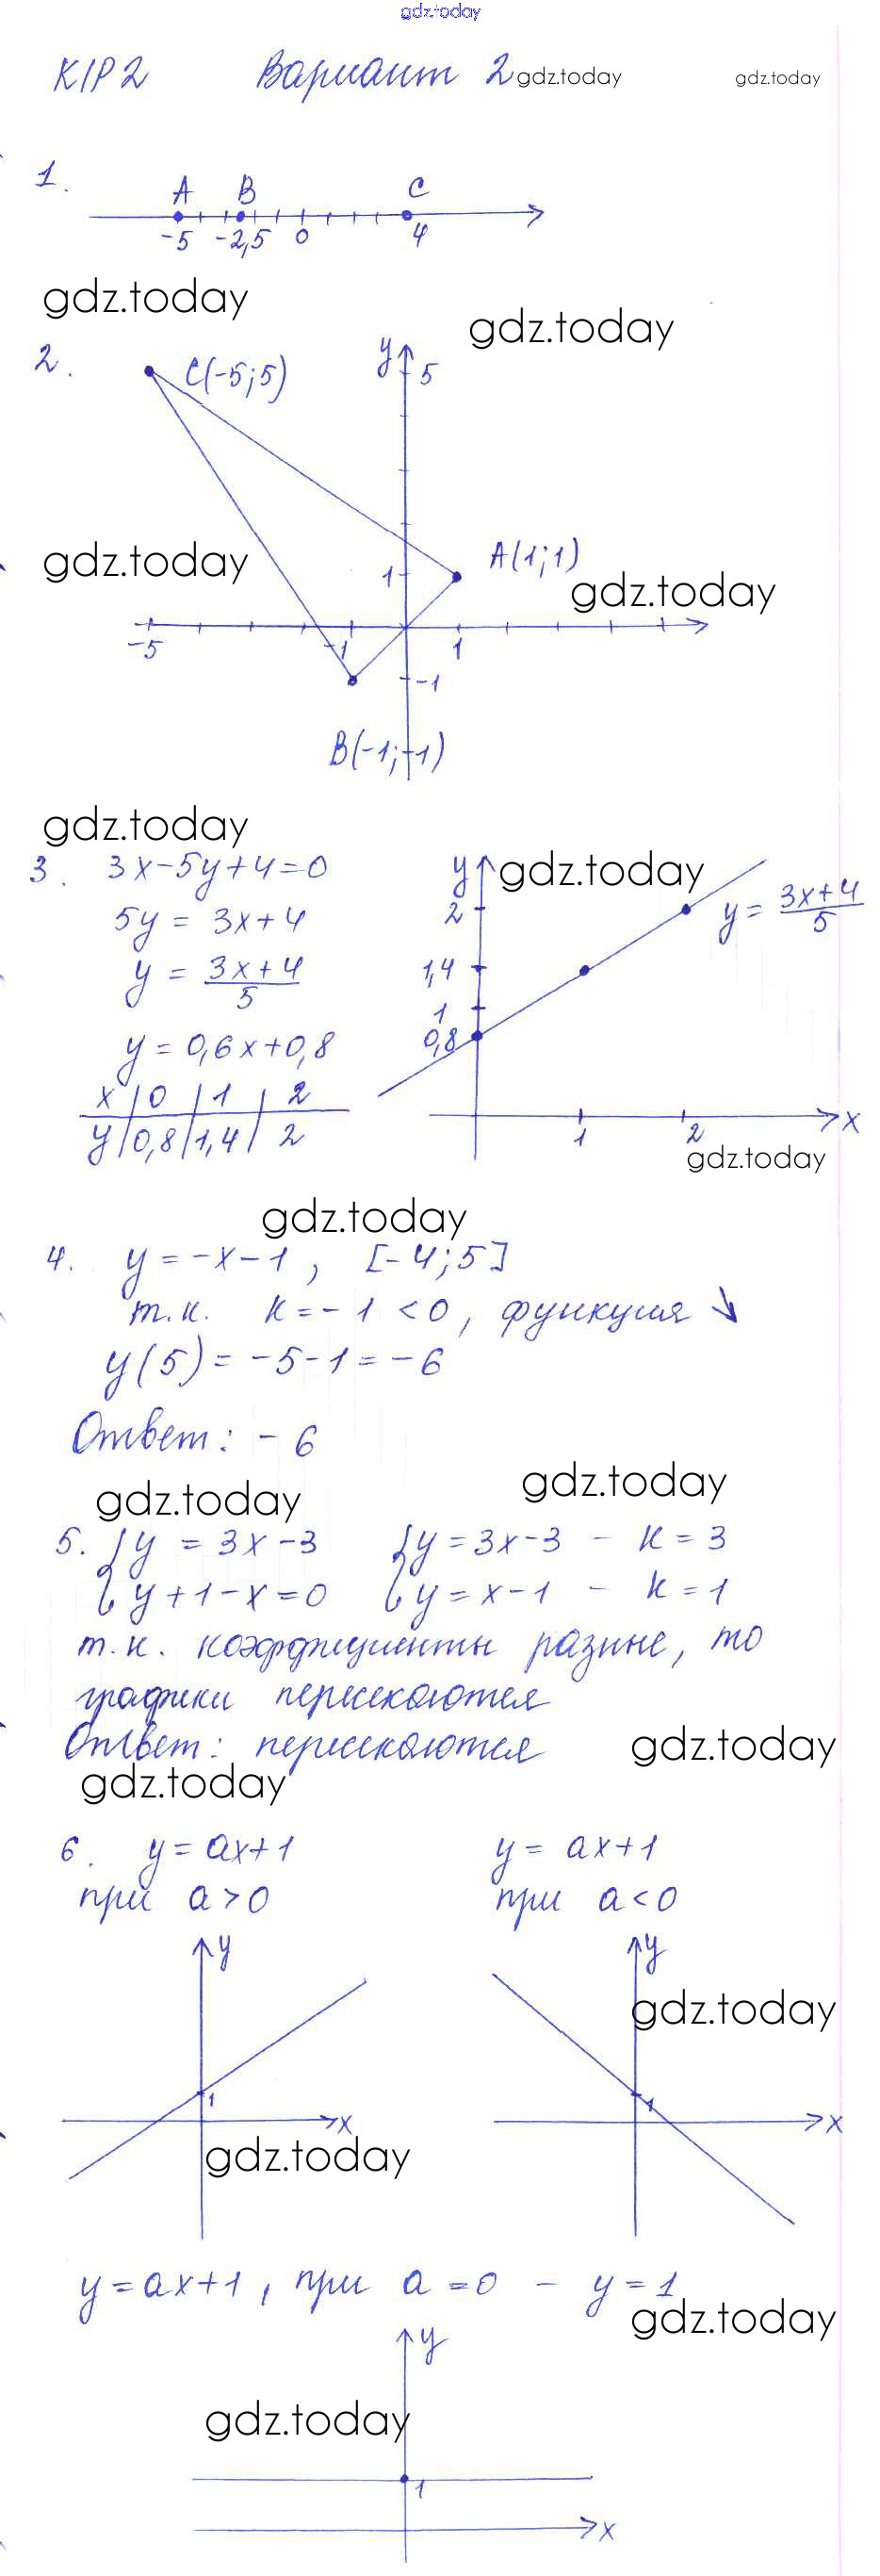 gdz.today
К/Р 2 Вариант 2 gdz.today gdz.today
1.
A B C
-5 -2,5 0 4
gdz.today
gdz.today
2.
C(-5;5) y 5
gdz.today
1 A(1;1)
gdz.today
-5 -1 1
-1
B(-1;-1)
gdz.today
3. 3x-5y+4=0
5y = 3x+4
y = 3x+4/5
y = 0,6x+0,8
x | 0 | 1 | 2
y | 0,8 | 1,4 | 2
y gdz.today
2 y = 3x+4/5
1,4
1
0,8
1 2 x
gdz.today
gdz.today
4. y = -x-1, [-4;5]
т.к. к = -1 < 0, функция ↘
y(5) = -5-1 = -6
Ответ: -6
gdz.today gdz.today
5. { y = 3x-3 { y = 3x-3 - к = 3
{ y+1-x=0 { y = x-1 - к = 1
т.к. коэффициенты разные, то
графики пересекаются
Ответ: пересекаются gdz.today
gdz.today
6. y = ax+1 y = ax+1
при a>0 при a<0
y y
gdz.today
1 1
x x
gdz.today
y=ax+1, при a=0 - y=1
gdz.today
y
gdz.today
1
x